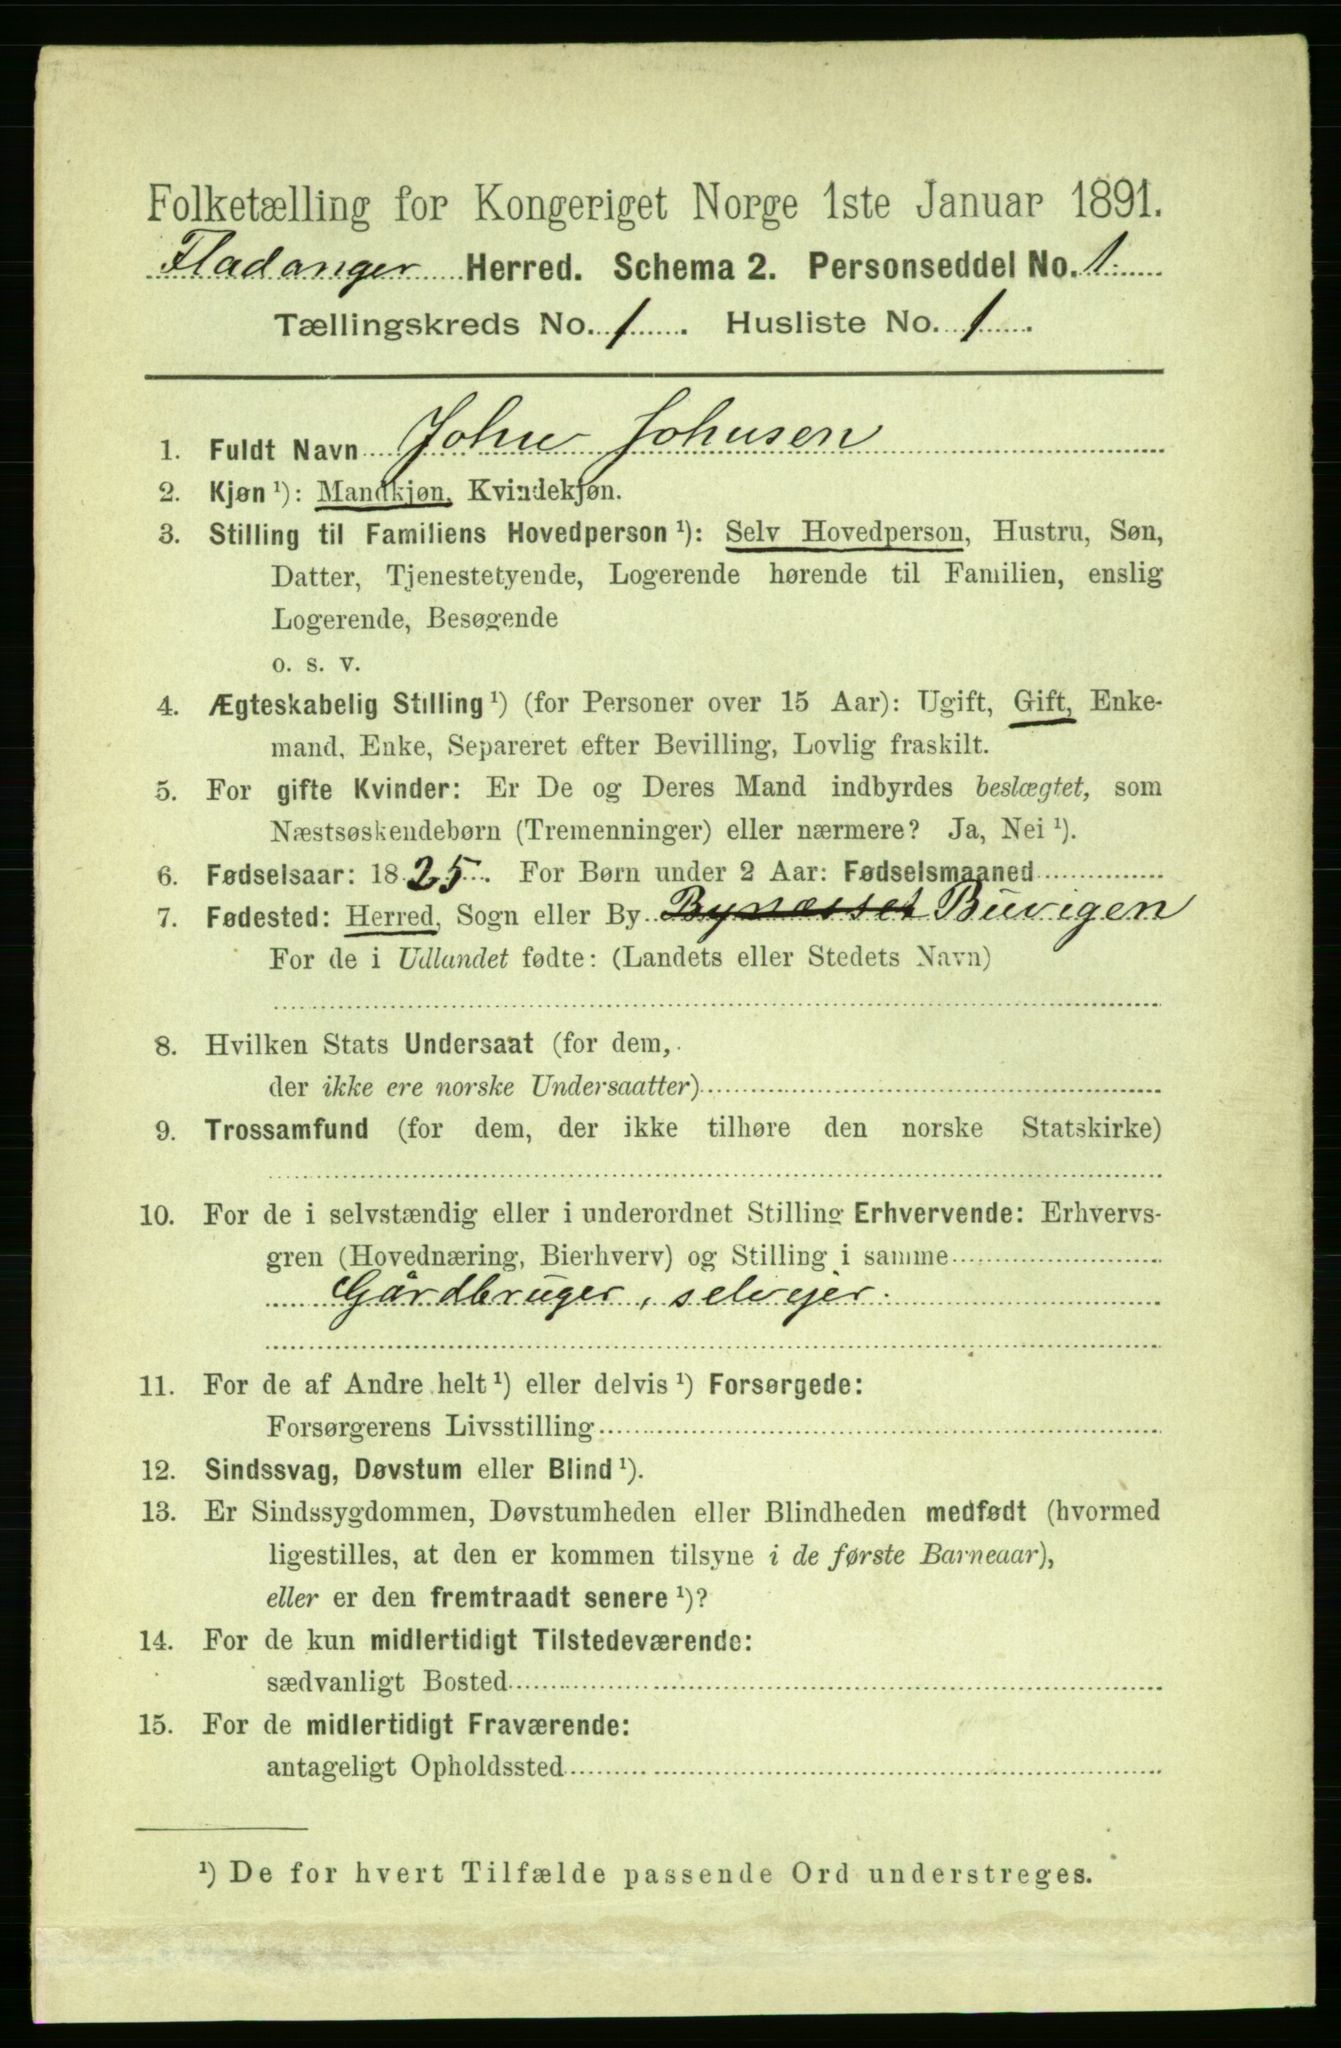 Folketælling for Kongeriget Norge 1ste Januar 1891.
Fladanger Herred. Schema 2. Personseddel No. 1
Tællingskreds No. 1. Husliste No. 1.
1. Fuldt Navn John Johnsen
2. Kjøn ¹): Mandkjøn, Kvindekjøn.
3. Stilling til Familiens Hovedperson ¹): Selv Hovedperson, Hustru, Søn,
Datter, Tjenestetyende, Logerende hørende til Familien, enslig
Logerende, Besøgende
o. s. v.
4. Ægteskabelig Stilling ¹) (for Personer over 15 Aar): Ugift, Gift, Enke-
mand, Enke, Separeret efter Bevilling, Lovlig fraskilt.
5. For gifte Kvinder: Er De og Deres Mand indbyrdes beslægtet, som
Næstsøskendebørn (Tremenninger) eller nærmere? Ja, Nei ¹).
6. Fødselsaar: 1825. For Børn under 2 Aar: Fødselsmaaned
7. Fødested: Herred, Sogn eller By Bynæsset Buvigen
For de i Udlandet fødte: (Landets eller Stedets Navn)
8. Hvilken Stats Undersaat (for dem,
der ikke ere norske Undersaatter)
9. Trossamfund (for dem, der ikke tilhøre den norske Statskirke)
10. For de i selvstændig eller i underordnet Stilling Erhvervende: Erhvervs-
gren (Hovednæring, Bierhverv) og Stilling i samme
Gårdbruger, selvejer.
11. For de af Andre helt ¹) eller delvis ¹) Forsørgede:
Forsørgerens Livsstilling
12. Sindssvag, Døvstum eller Blind ¹).
13. Er Sindssygdommen, Døvstumheden eller Blindheden medfødt (hvormed
ligestilles, at den er kommen tilsyne i de første Barneaar),
eller er den fremtraadt senere ¹)?
14. For de kun midlertidigt Tilstedeværende:
sædvanligt Bosted
15. For de midlertidigt Fraværende:
antageligt Opholdssted
¹) De for hvert Tilfælde passende Ord understreges.